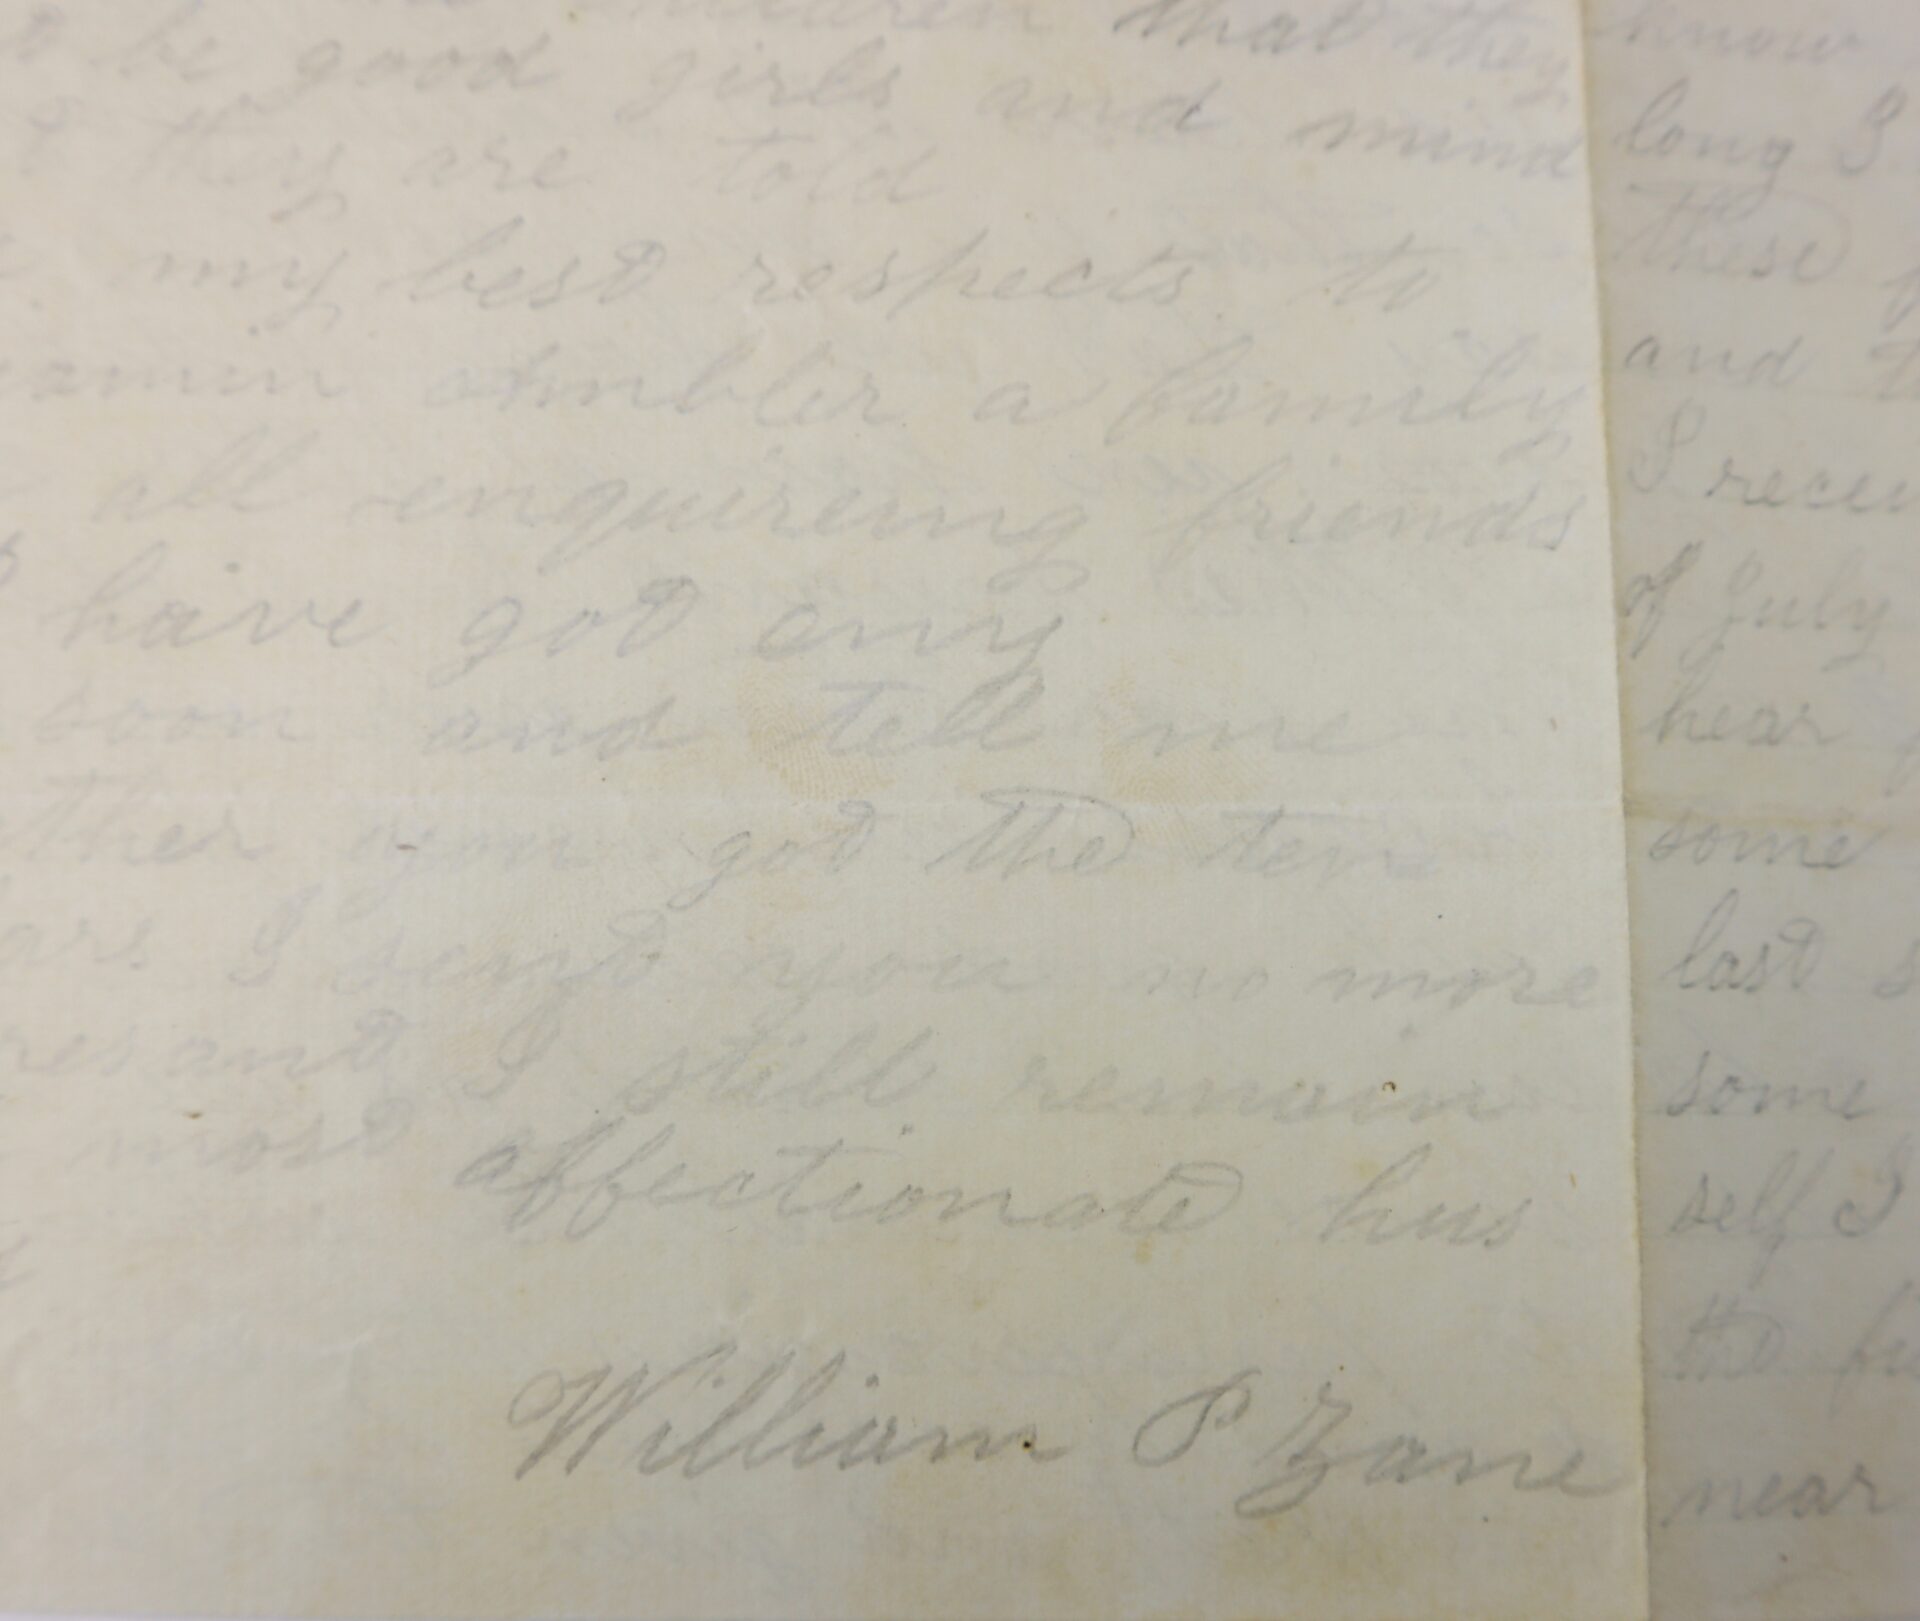 children that they
to be good girls and mind
they are told
my best respects to
amin Ambler a family
all enquireing friends
have got eny
soon and tell me
ther you got the ten
ars I send you no more
resant I still remain
most affectionate hus
William P Zane
know
long I
these
and
I recei
of July
hear
some
last s
some
self I
the fu
near